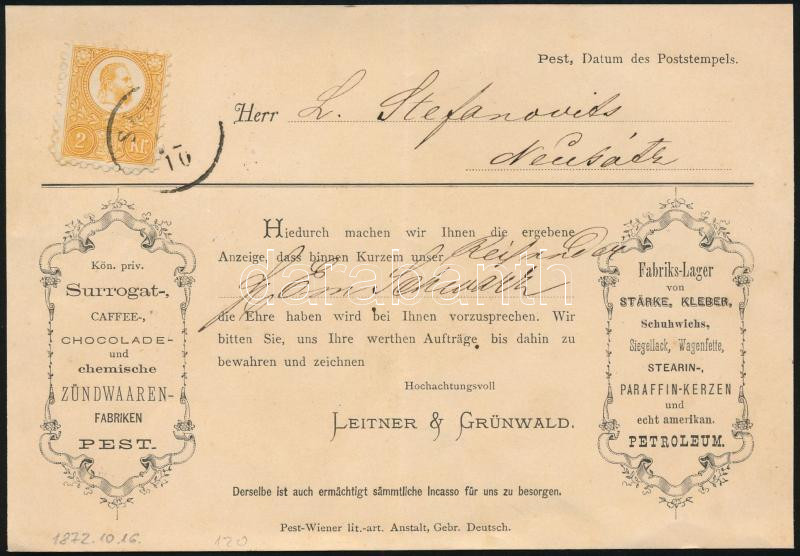 2 Kr
10
Pest, Datum des Poststempels.
Herr L. Stefanovits
Neusatz
Kön. priv.
Surrogat-,
CAFFEE-,
CHOCOLADE-
und
chemische
ZÜNDWAAREN-
FABRIKEN
PEST.
Hiedurch machen wir Ihnen die ergebene
Anzeige, dass binnen Kurzem unser Reisender
H. Em Schwartz
die Ehre haben wird bei Ihnen vorzusprechen. Wir
bitten Sie, uns Ihre werthen Aufträge bis dahin zu
bewahren und zeichnen
Hochachtungsvoll
LEITNER & GRÜNWALD.
Fabriks-Lager
von
STÄRKE, KLEBER,
Schuhwichs,
Siegellack, Wagenfette,
STEARIN-,
PARAFFIN-KERZEN
und
echt amerikan.
PETROLEUM.
Derselbe ist auch ermächtigt sämmtliche Incasso für uns zu besorgen.
Pest-Wiener lit.-art. Anstalt, Gebr. Deutsch.
1872.10.16.
120
darabanth